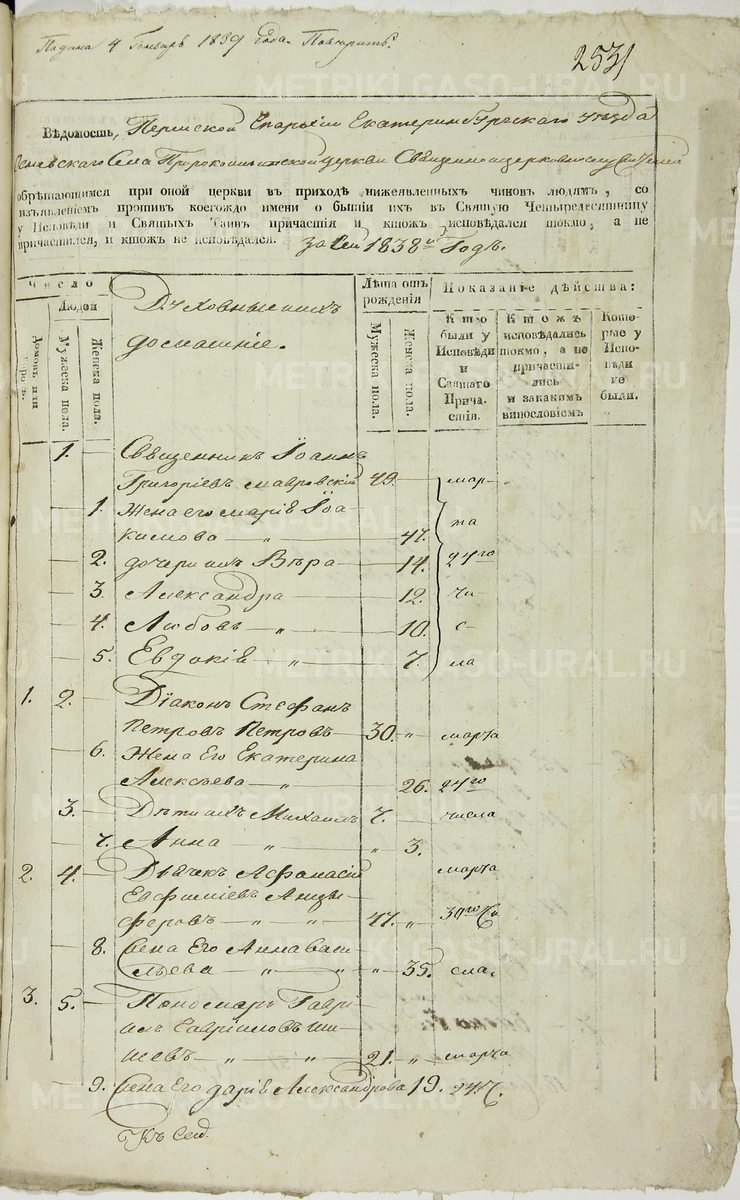 Подана 4 Генварь 1839 года.
253
Вѣдомость, Пермской Епархіи Екатеринбургскаго уѣзда
Села Пророкоильинской церкви
обрѣтающимся при оной церкви въ приходѣ нижеявленныхъ чиновъ людямъ, со
изъявленіемъ противъ коегождо имени о бытіи ихъ въ Святую Четыредесятницу
у Исповѣди и Святыхъ Таинъ причастія и ктожъ исповѣдался токмо, а не
причастился, и ктожъ не исповѣдался. За сей 1838й Годъ.
Число
Людей
Домовъ или
Мужеска пола.
Женска пола.
Духовные и ихъ
домашніе.
Лѣта отъ
рожденія
Мужеска пола.
Женска пола.
Показаніе дѣйства:
Кто
были у
Исповѣди
и
Святаго
Прича-
стія.
Ктожъ
исповѣдались
токмо, а не
причасти-
лись
и закакимъ
винословіемъ
Кото-
рые у
Испо-
вѣди
не
были.
1. Священникъ Іоаннъ
Григоріевъ Мавровскій 49. мар-
1. Жена его Марія Іоа- та
кимова — „ — 47.
2. дочери ихъ Вѣра — 14. 24го
3. Александра — 12. чи
4. Любовь — „ — 10. с-
5. Евдокія — „ — 7. ла
1. 2. — Діаконъ Стефанъ
Петровъ Петровъ — 30. „ марта
6. Жена Его Екатерина
Алексѣева — „ — 26. 24го
3. — Дѣти ихъ Михаилъ 7. числа
7. Анна „ „ 3.
2. 4. — Дьячекъ Афанасій марта
Евфиміевъ Анцы-
феровъ — „ — „ 47. „ 30го
8. Жена Его Анна Васи-
льева — „ — „ „ 35. сла.
3. 5. — Пономарь Гаврі-
илъ Гавріиловъ Ши-
шевъ — „ — „ 21. „ марта
9. Жена Его Дарія Александрова 19. 24.
METRIKI.GASO-URAL.RU